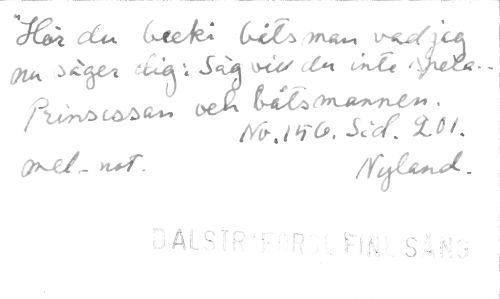 "Hör du becki båtsman vad jag
nu säger dig: Säg vill du inte spela..
Prinsessan och båtsmannen.
No. 156. Sid. 201.
mel-not. Nyland.
DALSTR FINL SÅNG